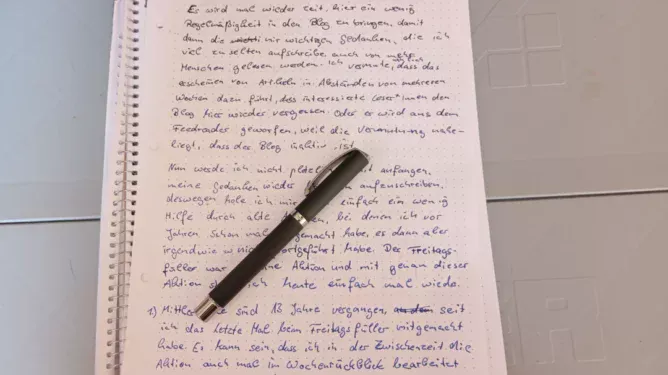 Es wird mal wieder Zeit, hier ein wenig
Regelmäßigkeit in den Blog zu bringen, damit
dann die mir wichtigen Gedanken, die ich
viel zu selten aufschreibe auch von mehr
Menschen gelesen werden. Ich vermute, dass das
erscheinen von Artikeln in Abständen von mehreren
Wochen dazu führt, dass interessierte Leser*innen den
Blog hier wieder vergessen. Oder er wird aus dem
Feedreader geworfen, weil die Vermutung nahe-
liegt, dass der Blog inaktiv ist.
Nun werde ich nicht anfangen,
meine Gedanken wieder aufzuschreiben.
deswegen hole ich einfach ein wenig
Hilfe durch alte bei denen ich vor
Jahren schon mal habe, es dann aber
irgendwie habe. Der Freitags-
füller war Aktion und mit genau dieser
Aktion ich heute einfach mal wieder.
1) sind 18 Jahre vergangen, seit
ich das letzte Mal beim Freitagsfüller mitgemacht
habe. Es kann sein, dass ich in der Zwischenzeit die
Aktion auch mal im Wochenrückblick bearbeitet